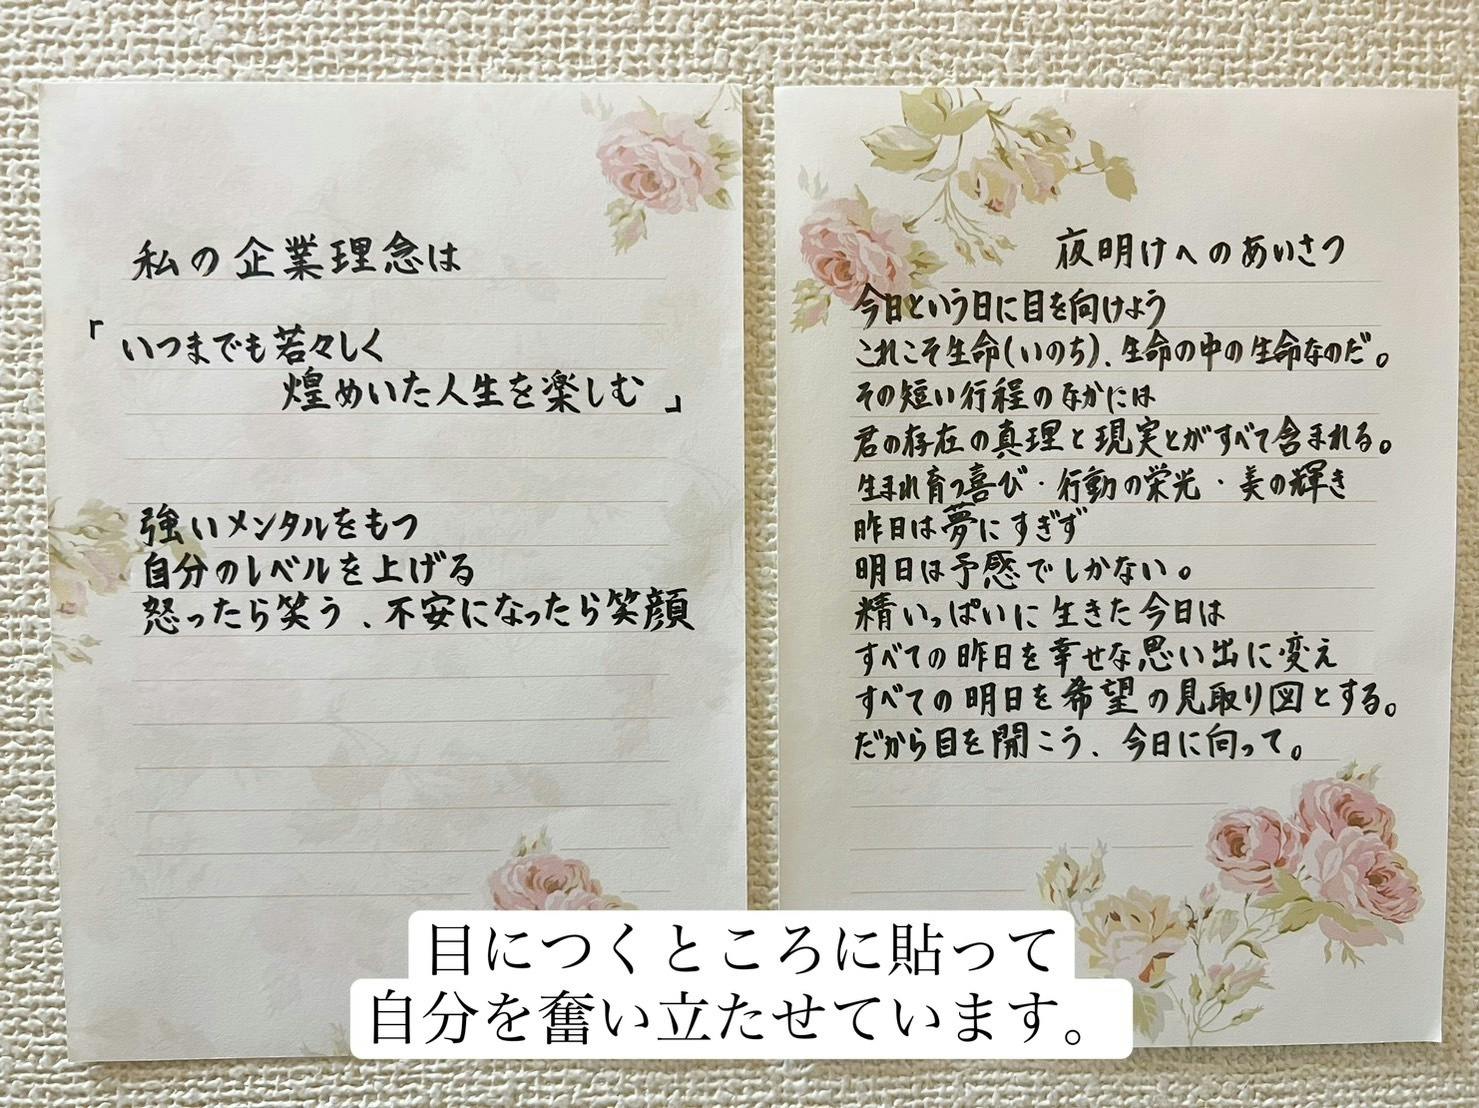 私の企業理念は
「いつまでも若々しく
煌めいた人生を楽しむ」
強いメンタルをもつ
自分のレベルを上げる
怒ったら笑う、不安になったら笑顔
夜明けへのあいさつ
今日という日に目を向けよう
これこそ生命(いのち)、生命の中の生命なのだ。
その短い行程のなかには
君の存在の真理と現実とがすべて含まれる。
生まれ育つ喜び・行動の栄光・美の輝き
昨日は夢にすぎず
明日は予感でしかない。
精いっぱいに生きた今日は
すべての昨日を幸せな思い出に変え
すべての明日を希望の見取り図とする。
だから目を開こう、今日に向って。
目につくところに貼って
自分を奮い立たせています。